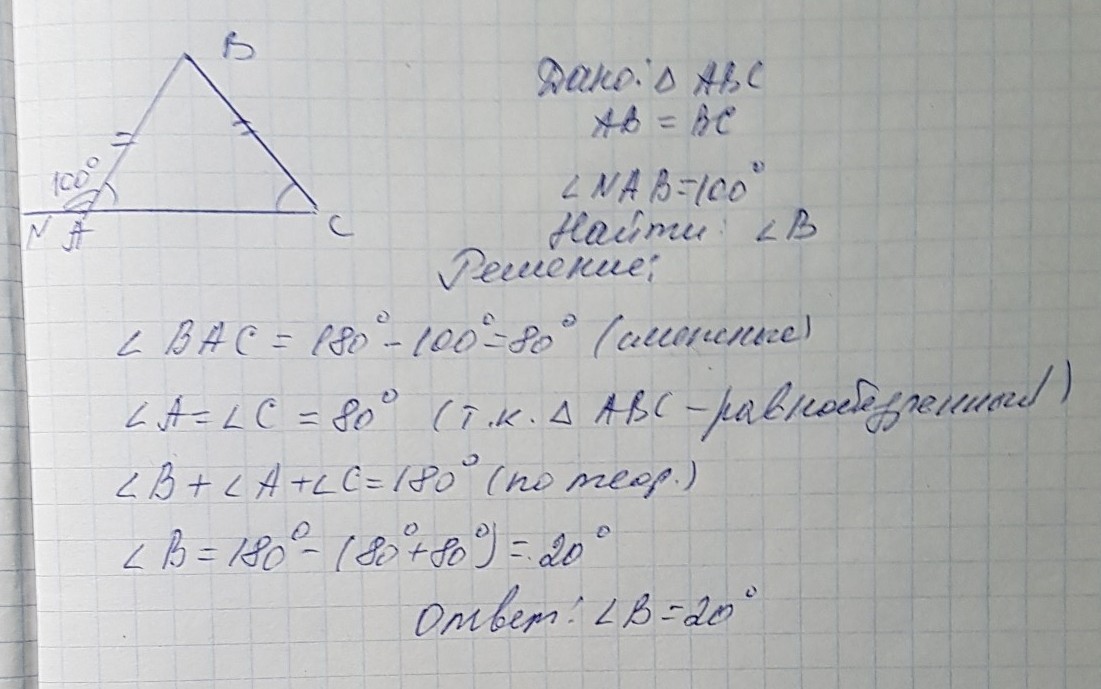 B
100°
N A C
Дано: Δ ABC
AB = BC
∠NAB=100°
Найти: ∠B
Решение:
∠BAC = 180° - 100° = 80° (смежные)
∠A = ∠C = 80° (т.к. Δ ABC - равнобедренный)
∠B + ∠A + ∠C = 180° (по теор.)
∠B = 180° - (80° + 80°) = 20°
Ответ: ∠B = 20°